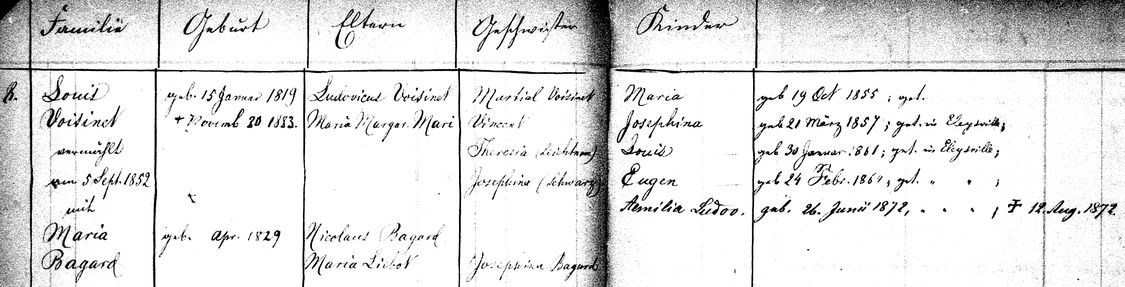 Familie Geburt Eltern Geschwister Kinder
8. Louis geb. 15 Januar 1819 Ludovicus Voisinet Martial Voisinet Maria geb 19 Oct 1855 ; get.
Voisinet + Novemb 30 1883. Maria Margar. Mari Vincent Josephina geb 21 März 1857 ; get. in Eleysville;
vermählt Theresia Louis geb 30 Januar 1861; get. in Eleysville;
am 5 Sept. 1852 Josephina (Schwarz) Eugen geb 24 Febr. get. " " ;
mit Aemilia Ludov. geb. 26. Junii 1872, " " " ; + 12 Aug. 1872
Maria geb. Apr. 1829 Nicolaus Bagard
Bagard Maria Josephina Bagard